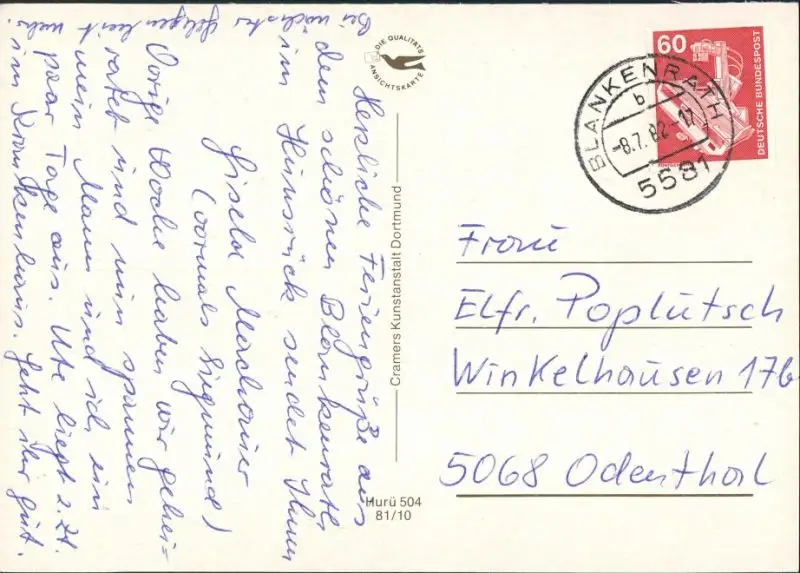 Herzliche Feriengrüße aus
dem schönen Blankenrath
im Hunsrück sendet Ihnen
Gisela
(vormals Siegmund)
Vorige Woche haben wir gehei-
ratet und nun spannen
mein Mann und ich ein
paar Tage aus. Ute liegt z.Zt.
im Krankenhaus. Geht ihr gut.
Bei nächster Gelegenheit mehr.
DIE QUALITÄTS
ANSICHTSKARTE
Cramers Kunstanstalt Dortmund
Hurü 504
81/10
60
DEUTSCHE BUNDESPOST
BLANKENRATH
b
-8.7.82-17
5581
Frau
Elfr. Poplutsch
Winkelhausen 17b
5068 Odenthal